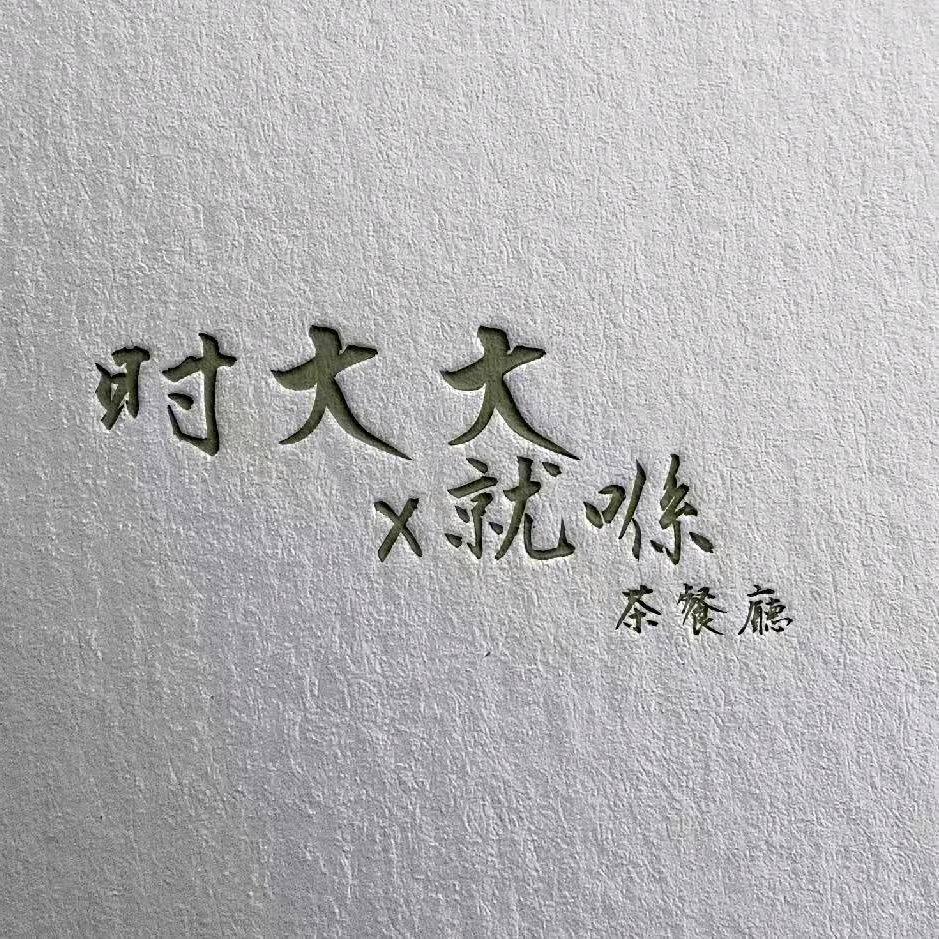 时大大
x就喺
茶餐廳